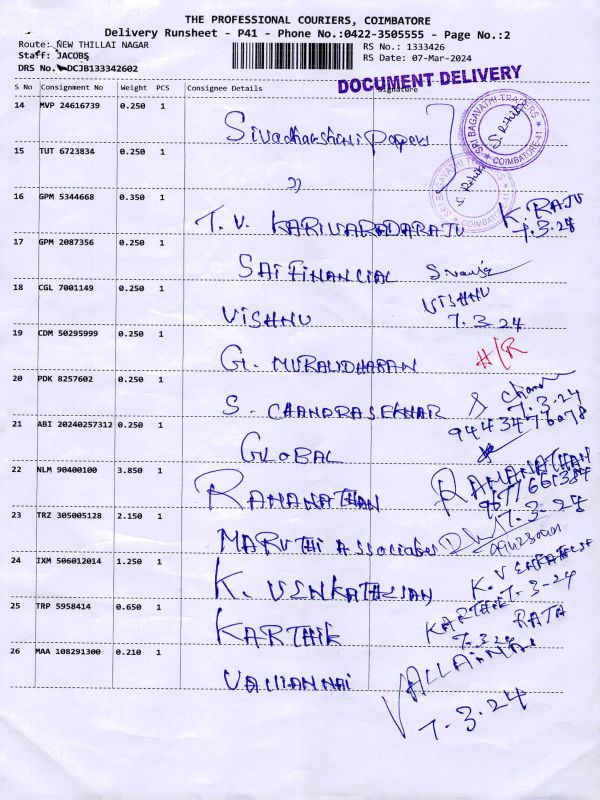 THE PROFESSIONAL COURIERS, COIMBATORE
Delivery Runsheet - P41 - Phone No.:0422-3505555 - Page No.:2
Route: NEW THILLAI NAGAR
RS No.: 1333426
Staff: JACOBS
RS Date: 07-Mar-2024
DRS No. DCJB133342602
DOCUMENT DELIVERY
S No Consignment No Weight PCS Consignee Details Signature
14 MVP 24616739 0.250 1
Sivadharshini Papers
SRI BAGAVATHI TRADERS
COIMBATORE-41
15 TUT 6723834 0.250 1
"
SRI BAGAVATHI TRADERS
COIMBATORE-41
16 GPM 5344668 0.350 1
T. V. KARIVARADARAJU K. RAJU
7.3.24
17 GPM 2087356 0.250 1
SAI FINANCIAL
18 CGL 7001149 0.250 1
VISHNU VISHNU
7.3.24
19 CDM 50295999 0.250 1
G. MURALIDHARAN H/R
20 PDK 8257602 0.250 1
S. CHANDRASEKHAR
7.3.24
9443477078
21 ABI 20240257312 0.250 1
GLOBAL
22 NLM 90400100 3.850 1
RAMANATHAN RAMANATHAN
7.3.24
23 TRZ 305005128 2.150 1
MARUTHI Associates
24 IXM 506012014 1.250 1
K. VENKATESAN K. VENKATESH
7-3-24
25 TRP 5958414 0.650 1
KARTHIK KARTHIK
7.3.24
26 MAA 108291300 0.210 1
VALLIANNAI VALLAINNAI
7.3.24